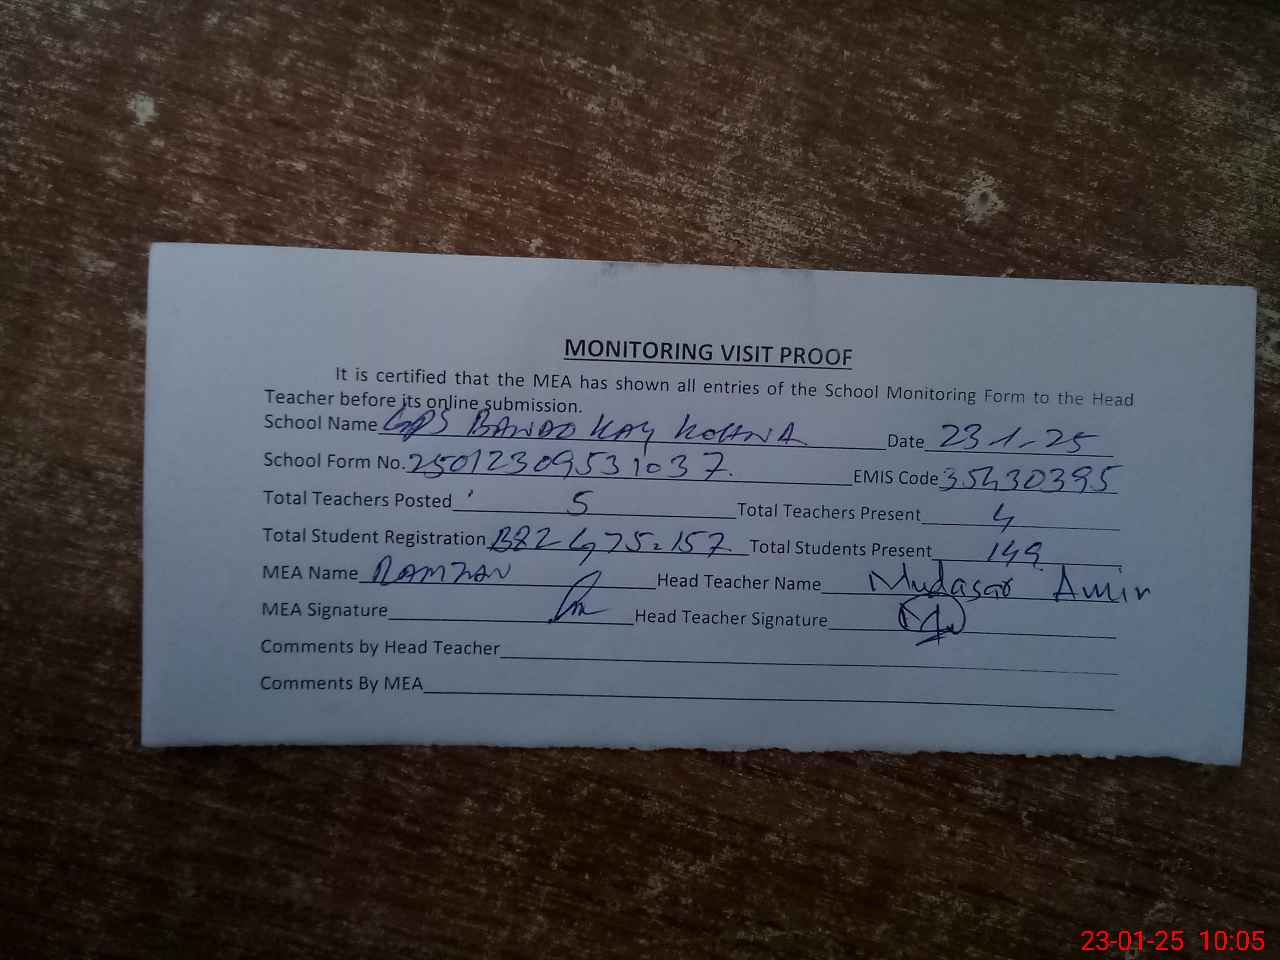 MONITORING VISIT PROOF
It is certified that the MEA has shown all entries of the School Monitoring Form to the Head
Teacher before its online submission.
School Name GPS BANDO KAY KOHNA Date 23-1-25
School Form No. 25012309531037. EMIS Code 35430395
Total Teachers Posted 5 Total Teachers Present 4
Total Student Registration B82 G75=157 Total Students Present 149
MEA Name RAMZAN Head Teacher Name Mudasar Amin
MEA Signature Head Teacher Signature
Comments by Head Teacher
Comments By MEA
23-01-25 10:05